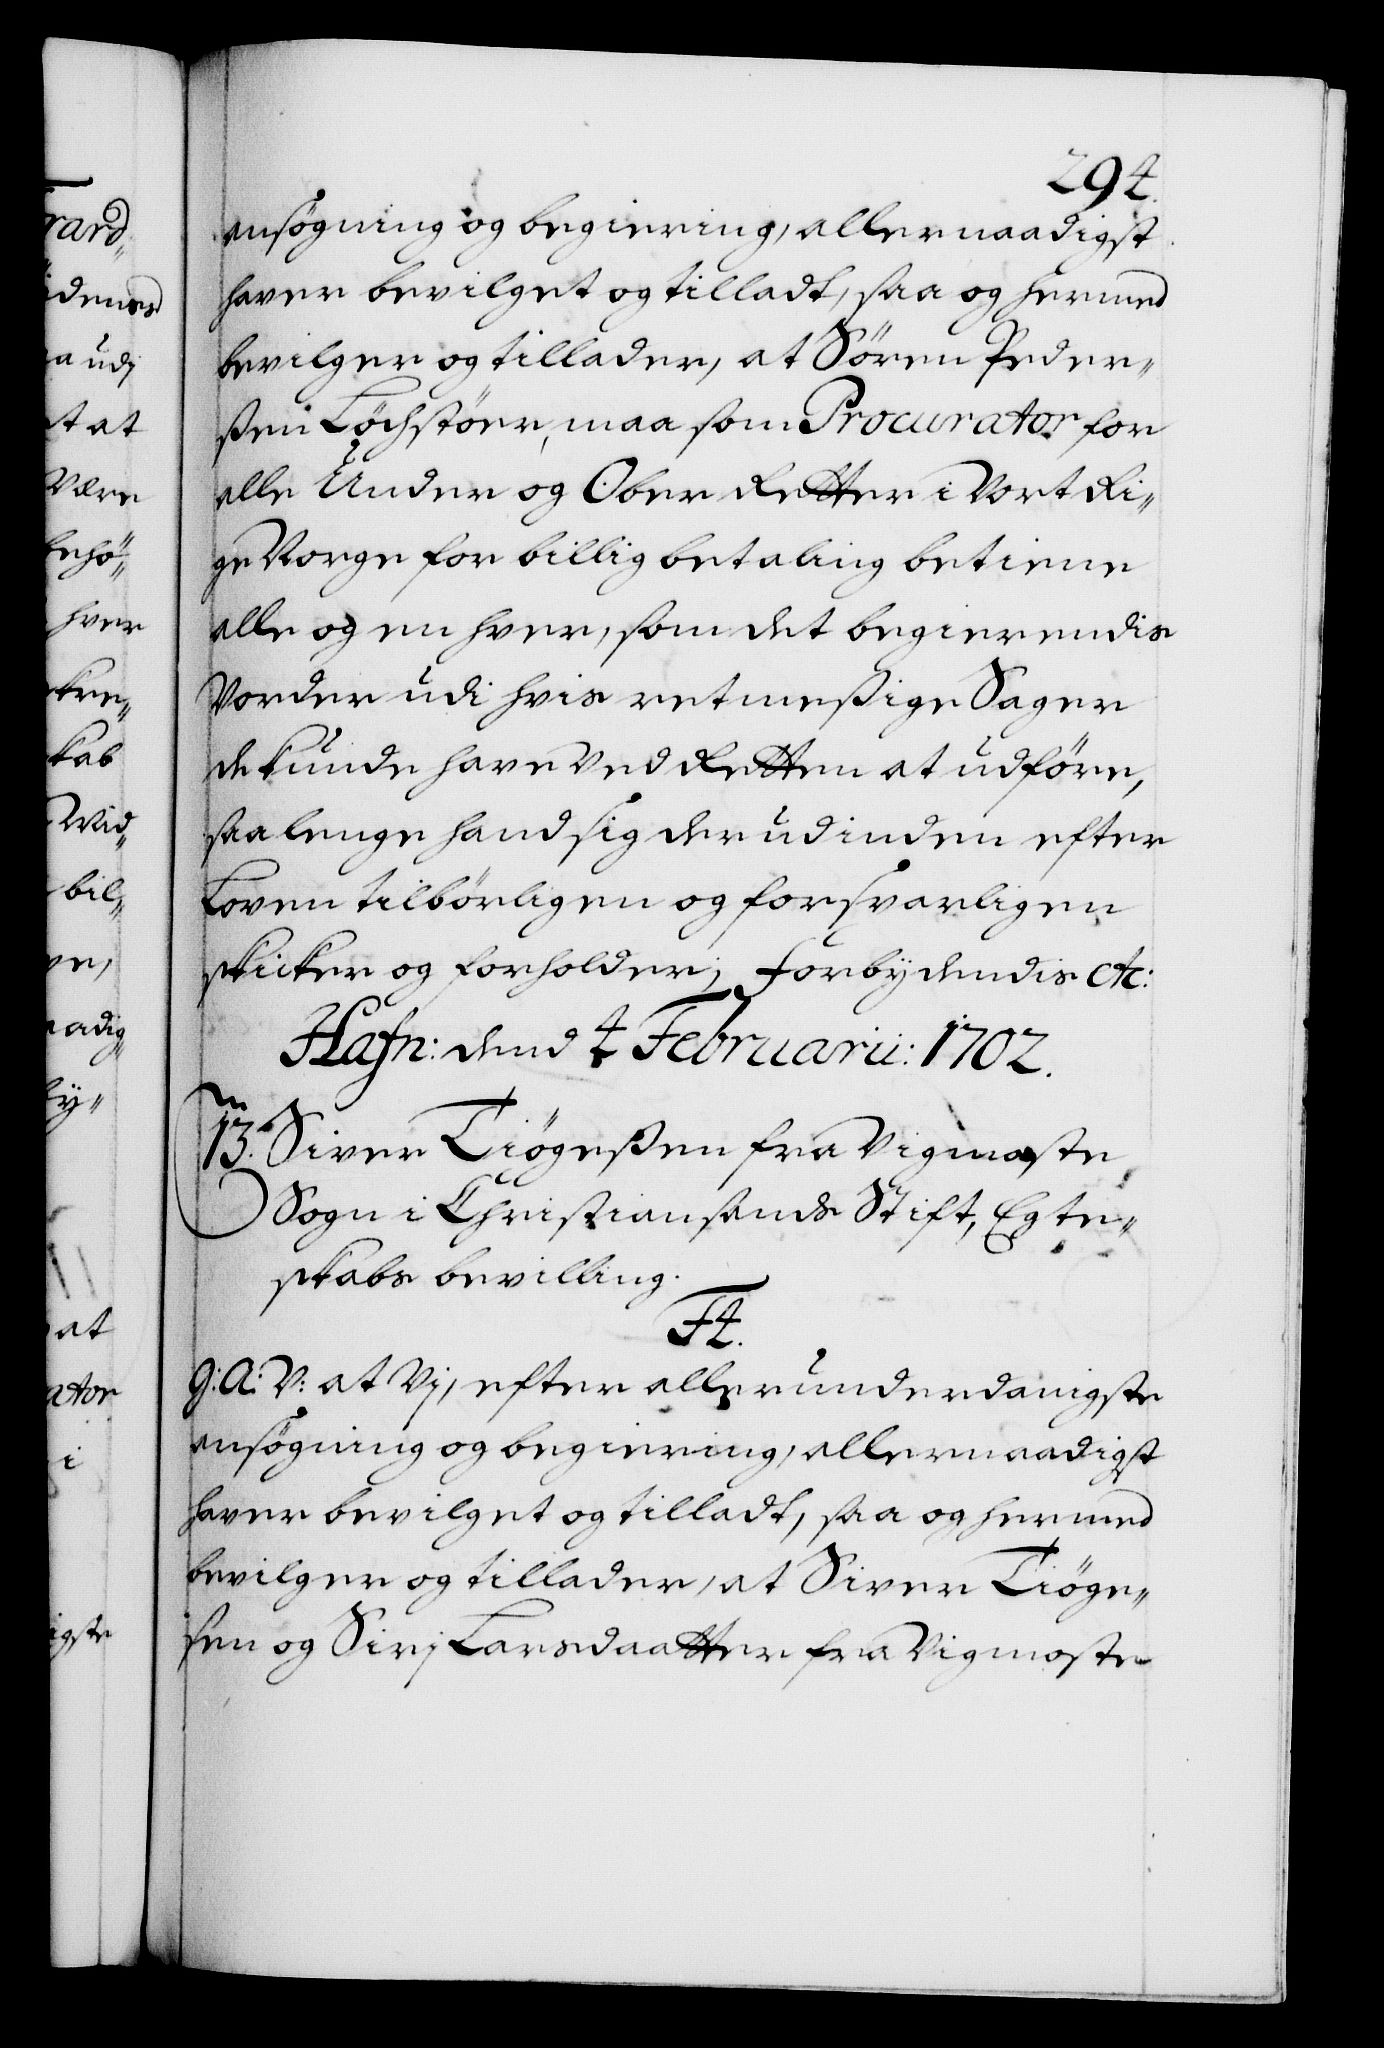 294.
ansögning og begiering, allernaadigst
haver bevilget og tilladt, saa og hermed
bevilger og tillader, at Sören Peder„
ßen Löchstöer, maa som Procurator for
alle Under og Ober Retter i Vort Ri„
ge Norge for billig betaling betiene
alle og en hver, som det begierendis
Vorder udi hvis retmeßige Sager
de kunde have Ved Retten at udföre,
saa lenge hand sig derudinden efter
Loven tilbörligen og forsvarligen
skicker og forholder; Forbydendis etc:
Hafn: dend 4 Februarii: 1702.
13. Siver Tiögeßen fra Vigmoste
Sogn i Christiansands Stift, Egte„
skabs bevilling.
F4.
G: A: V: at Vj, efter allerunderdanigste
ansögning og begiering, allernaadigst
haver bevilget og tilladt, saa og hermed
bevilger og tillader, at Siver Tiöge„
sen og Sirj Larsdaatter fra Vigmoste
rard„
idenss
a udj
t at
Være
behö„
hver
kre„
kab
Vid„
bil„
ve,
aadig„
by„
at
ator
i
igste